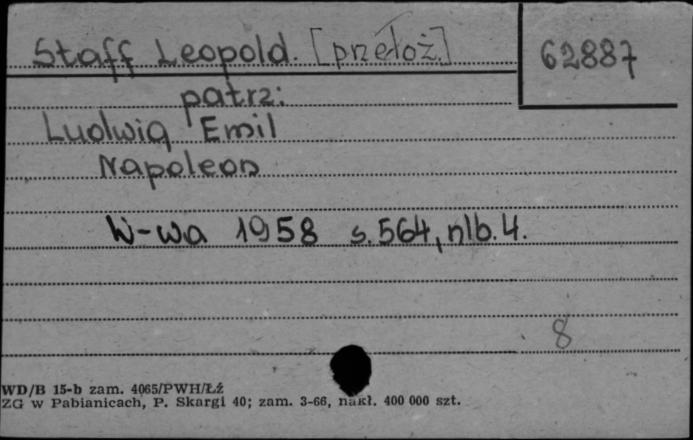 Staff Leopold. [przełoż.]
62887
patrz:
Ludwig Emil
Napoleon
W-wa 1958 s.564, nlb.4.
8
WD/B 15-b zam. 4065/PWH/Łź
ZG w Pabianicach, P. Skargi 40; zam. 3-66, nakł. 400 000 szt.